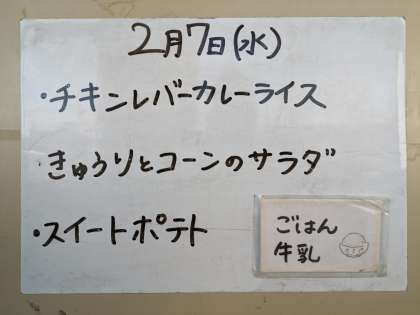 2月7日(水)
・チキンレバーカレーライス
・きゅうりとコーンのサラダ
・スイートポテト
ごはん
牛乳